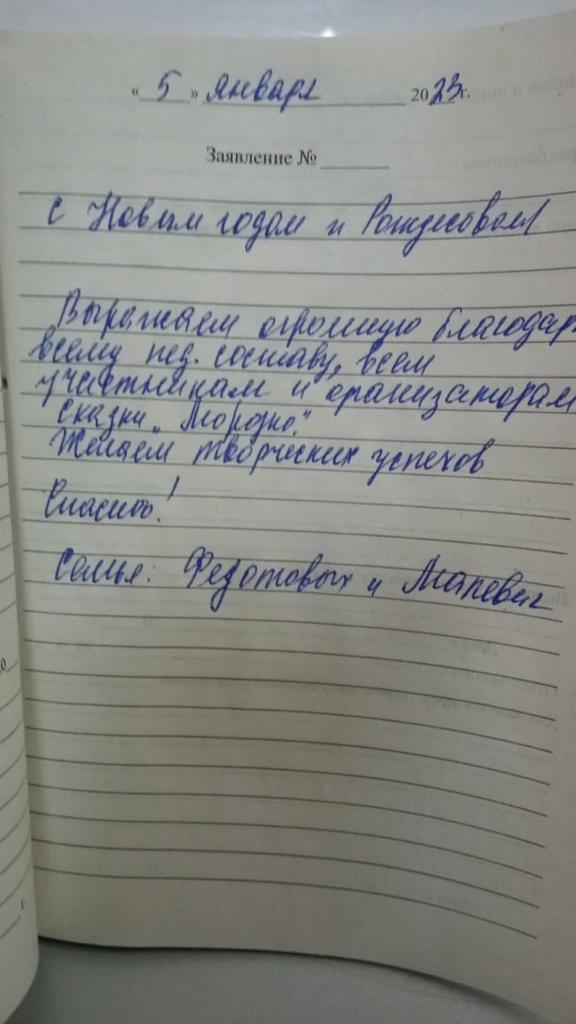 « 5 » января 2023г.
Заявление №
С Новым годом и Рождеством
Выражаем огромную благодар
всему пед. составу, всем
участникам и организаторам
сказки „Морозко."
Желаем творческих успехов
Спасибо!
Семья: Федотовых и